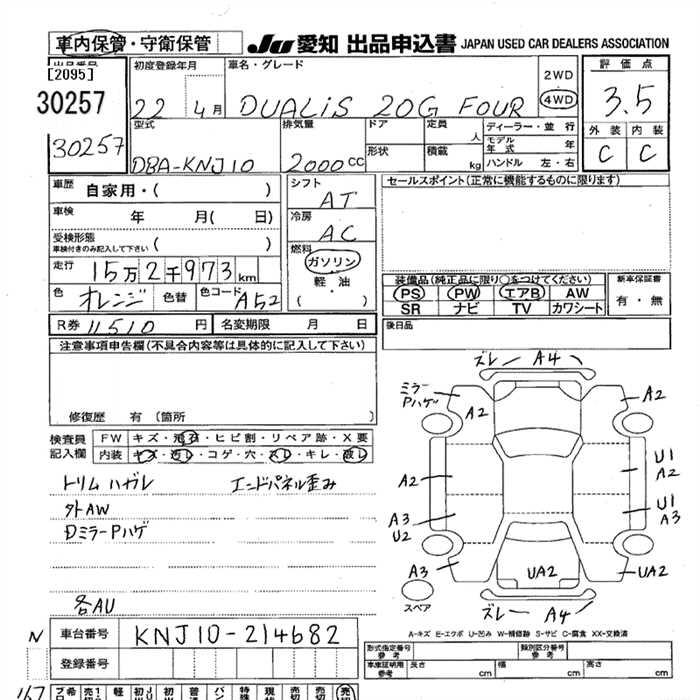 車内保管・守衛保管 Ju 愛知 出品申込書 JAPAN USED CAR DEALERS ASSOCIATION
出品番号 初度登録年月 車名・グレード 2WD 評価点
[2095]
30257 22 4月 DUALiS 20G FOUR 4WD 3.5
30257 型式 排気量 ドア 定員 人 ディーラー・並行 外装 内装
モデル年式 年
DBA-KNJ10 2000cc 形状 積載 kg ハンドル 左・右 C C
車歴 自家用・( ) シフト AT セールスポイント(正常に機能するものに限ります)
車検 年 月( 日) 冷房 AC
受検形態 車検付きのみ記入して下さい ( ) 燃料 ガソリン
走行 15万2千973km 軽・油
装備品(純正品に限り○をつけてください) 新車保証書
色 オレンジ 色替 色コード A52 ( )
PS PW エアB AW 有・無
SR ナビ TV カワシート
R券 11510円 名変期限 月 日 後日品
注意事項申告欄(不具合内容等は具体的に記入して下さい)
修復歴 有(箇所
ズレ A4
ミラーPハゲ A2 A2
検査員記入欄 FW キズ・飛石・ヒビ割・リペア跡・X要
内装 キズ・汚レ・コゲ・穴・スレ・キレ・破レ
トリムハガレ エンドパネル歪み
外AW
DミラーPハゲ
各AU
A2 U1 A2
A3 U2 U1 A3
A3 UA2 UA2
スペア ズレ A4
A-キズ E-エクボ U-凹み W-補修跡 S-サビ C-腐食 XX-交換済
N 車台番号 KNJ10-214682
登録番号
形式指定番号 参考 類別区分番号 参考
車庫証明用 参考 長さ cm 幅 cm 高さ cm